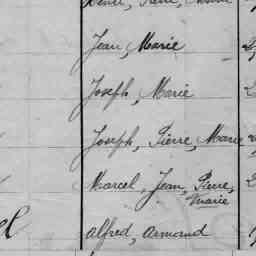 Jean, Marie
Joseph, Marie
Joseph, Pierre, Marie
Marcel, Jean, Pierre,
Marie
Alfred, Armand